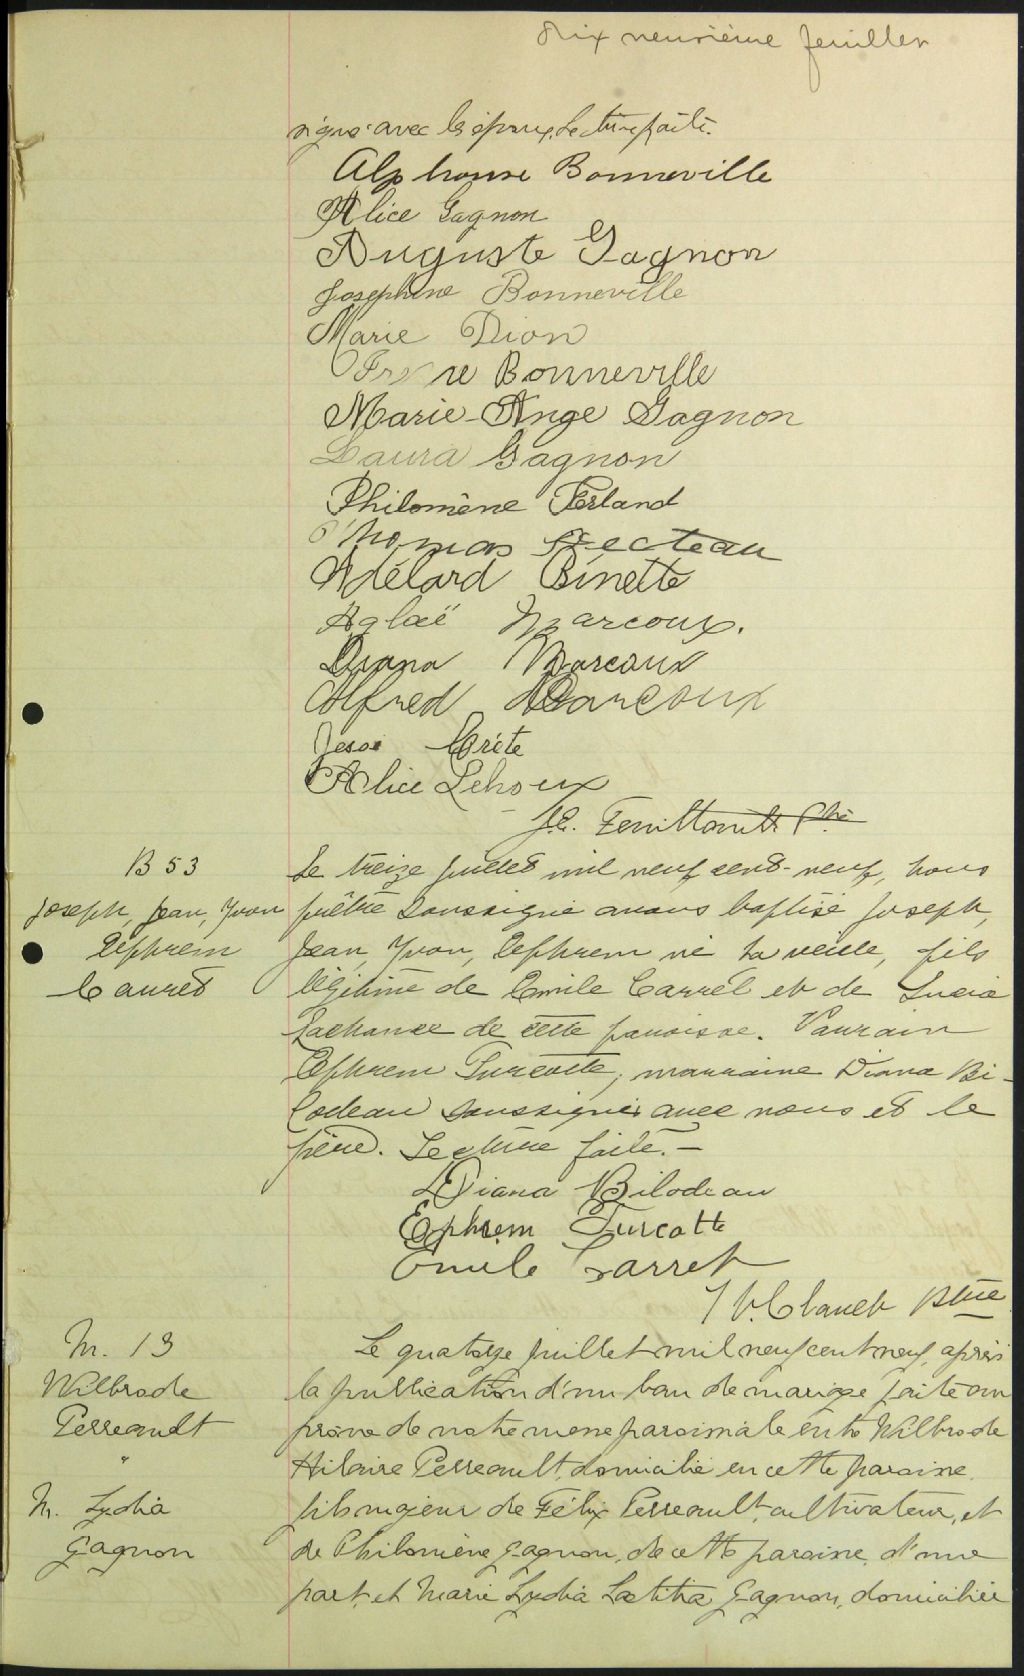 Dix neuvième feuillet
signé avec les époux. Lecture faite.
Alphonse Bonneville
Alice Gagnon
Auguste Gagnon
Josephine Bonneville
Marie Dion
Bonneville
Marie-Ange Gagnon
Laura Gagnon
Philomène Ferland
Thomas Fecteau
Adélard Binette
Aglaé Marcoux.
Diana Marcoux
Alfred Marcoux
Crête
Alice Lehoux
J.E. Feuiltault Ptre
B 53
Joseph, Jean, Yvon
Ephrem
Carret
Le treize juillet mil neuf cent-neuf, nous
prêtre soussigné avons baptisé Joseph,
Jean, Yvon, Ephrem né la veille, fils
légitime de Emile Carrel et de Lucia
Lachance de cette paroisse. Parrain
Ephrem Turcotte, marraine Diana Bi-
lodeau soussignés avec nous et le
père. Lecture faite. —
Diana Bilodeau
Ephrem Turcotte
Emile Carret
Ptre
M. 13
Wilbrode
Perreault
"
M. Lydia
Gagnon
Le quatorze juillet mil neuf cent neuf, après
la publication d'un ban de mariage faite au
prône de notre messe paroissiale entre Wilbrode
Hilaire Perreault, domicilié en cette paroisse,
fils majeur de Félix Perreault, cultivateur, et
de Philomène Gagnon, de cette paroisse, d'une
part, et Marie Lydia Laetitia Gagnon, domiciliée